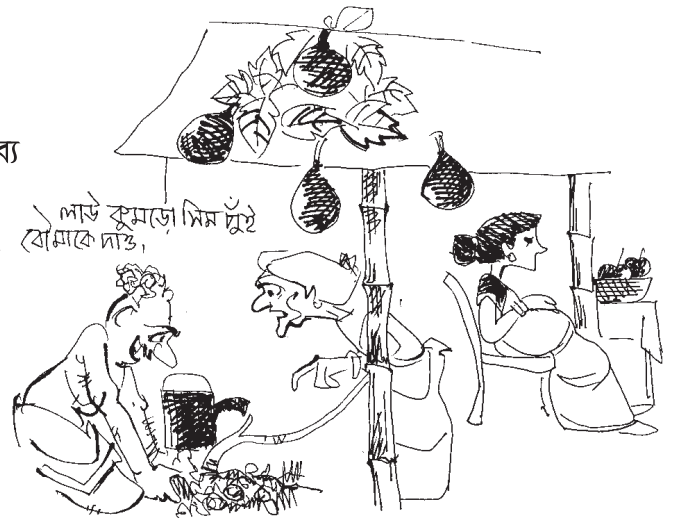 ব্য
লাউ কুমড়ো সিম পুঁই
বৌমাকে দাও,